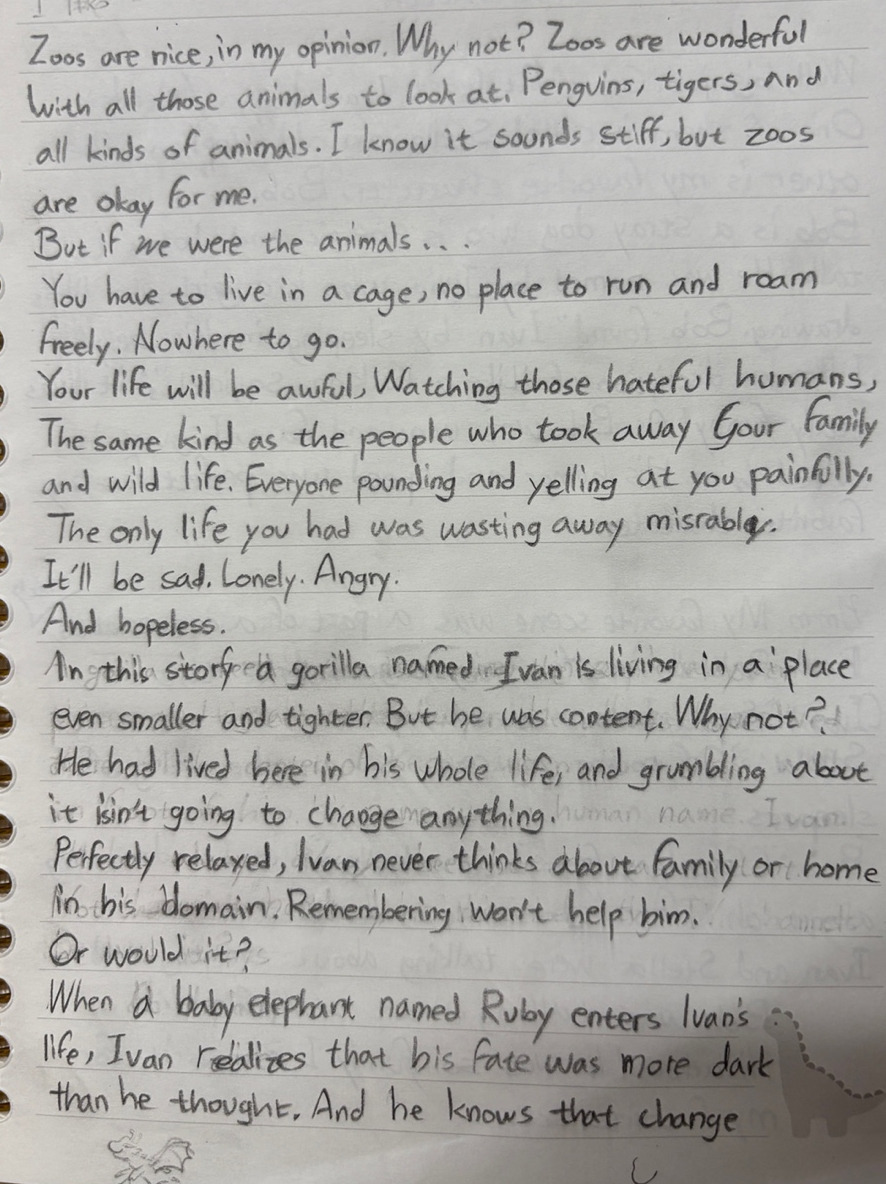 Zoos are nice, in my opinion. Why not? Zoos are wonderful
with all those animals to look at. Penguins, tigers, and
all kinds of animals. I know it sounds stiff, but zoos
are okay for me.
But if we were the animals...
You have to live in a cage, no place to run and roam
freely. Nowhere to go.
Your life will be awful, Watching those hateful humans,
The same kind as the people who took away your family
and wild life. Everyone pounding and yelling at you painfully.
The only life you had was wasting away misrably.
It'll be sad. Lonely. Angry.
And hopeless.
In this story a gorilla named Ivan is living in a place
even smaller and tighter. But he was content. Why not?
He had lived here in his whole life, and grumbling about
it isin't going to change anything.
Perfectly relaxed, Ivan never thinks about family or home
in his domain. Remembering won't help him.
Or would it?
When a baby elephant named Ruby enters Ivan's
life, Ivan realizes that his fate was more dark
than he thought. And he knows that change